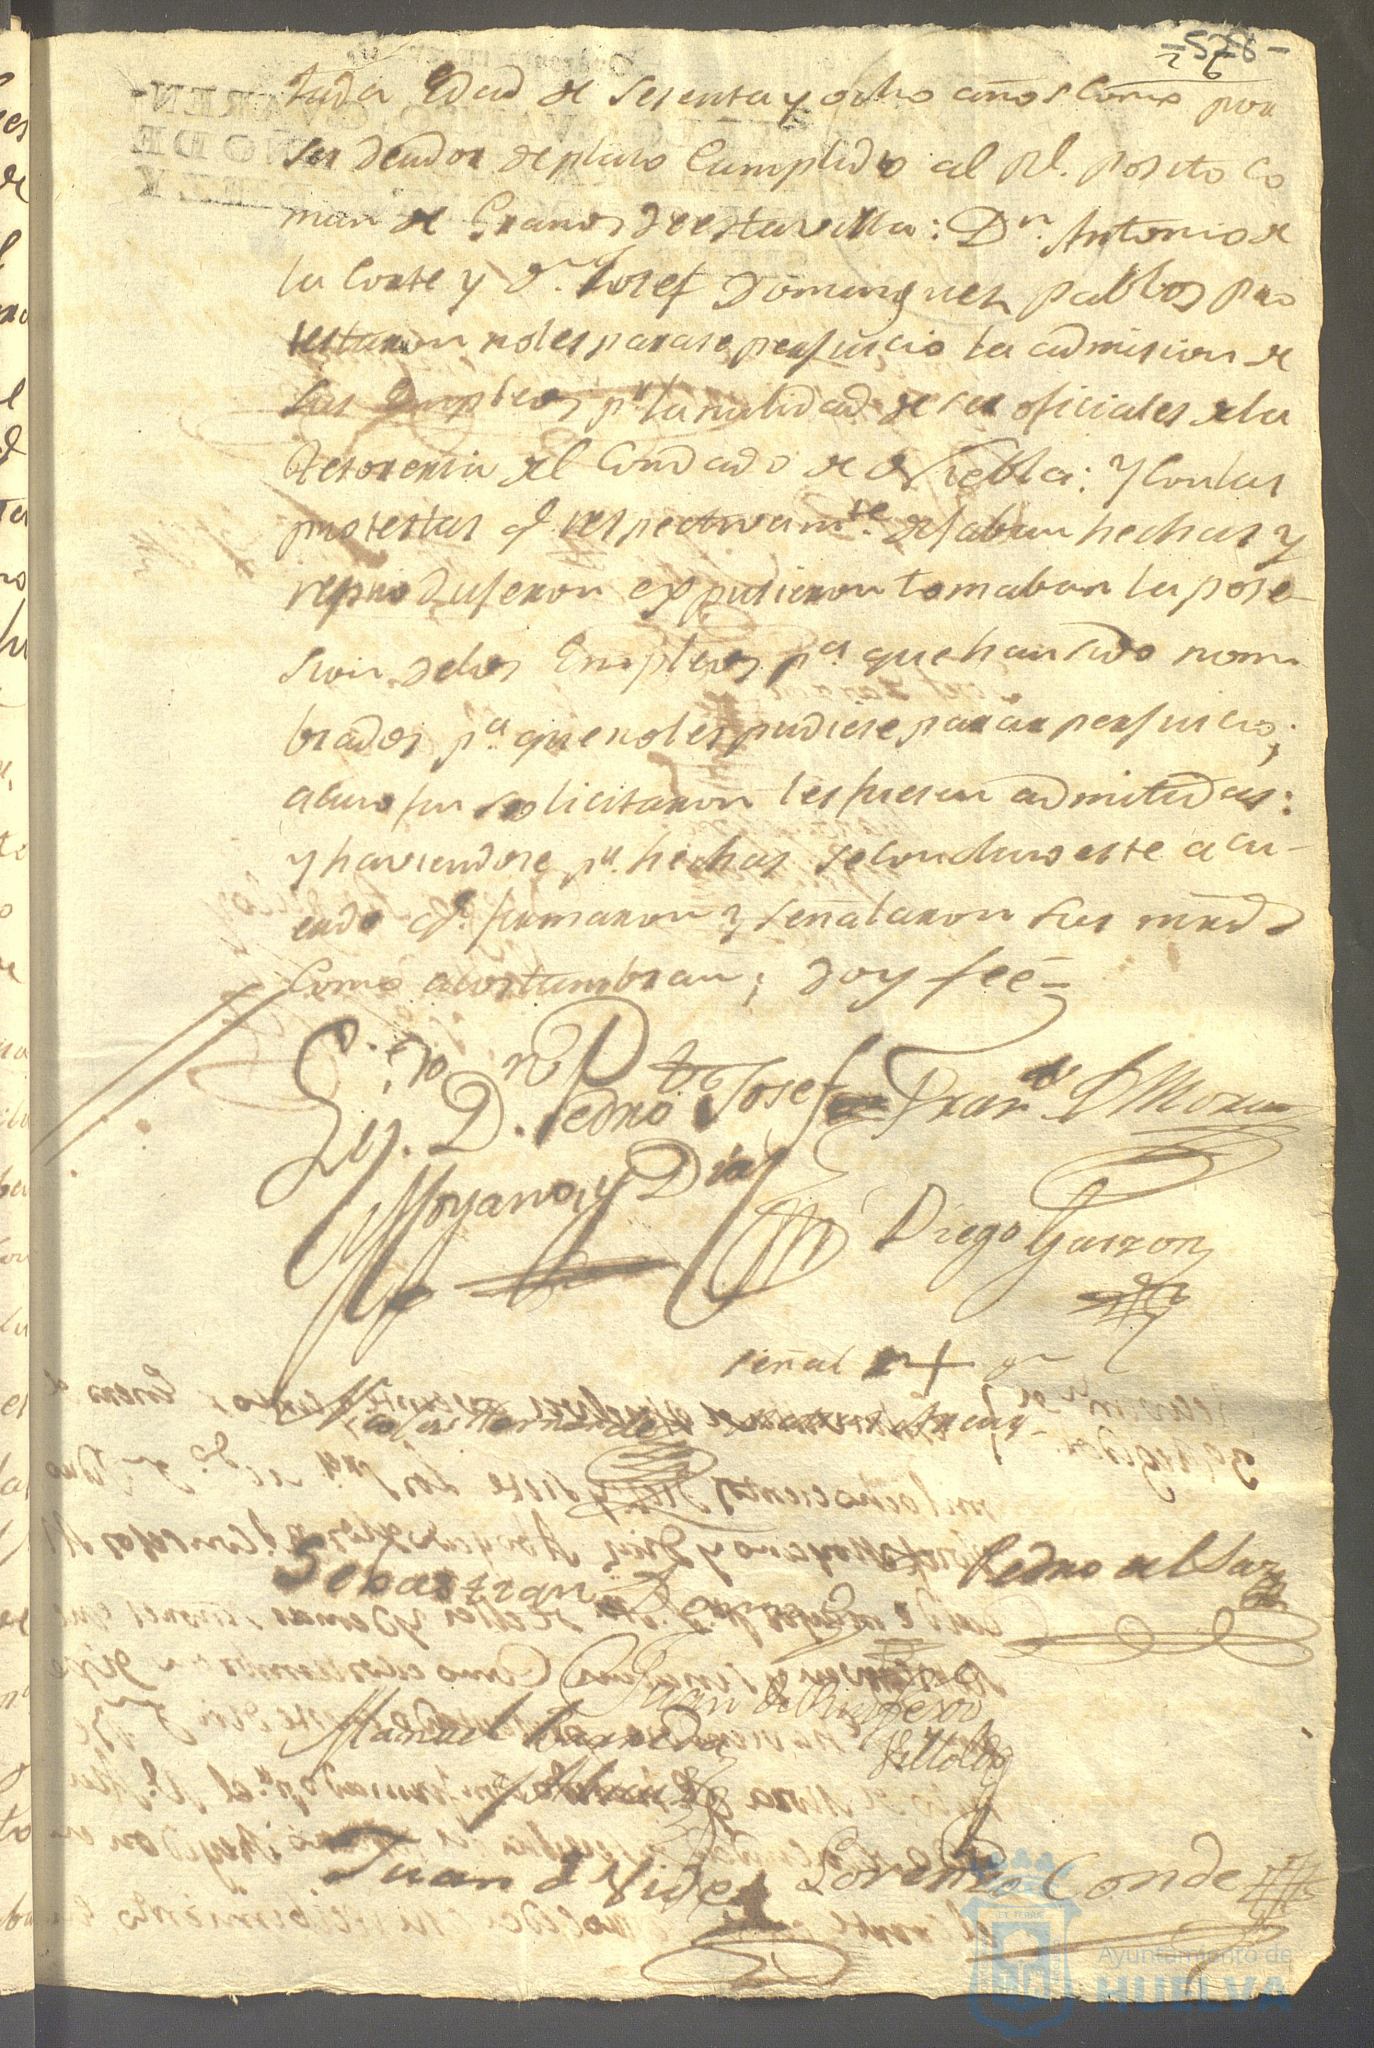 -578-
26
tada Edad de sesenta y ocho años Como por
ser deudor de plaso Cumplido al Rl. Posito Co
mun de Granos de esta villa: Dn. Antonio de
la Corte y Dn. Josef Dominguez pablos pro
testaron no les parase perjuicio la admision de
sus Empleos pr. la nulidad de ser oficiales de la
Thesoreria del Condado de Niebla: y con las
protestas q. respectivamte. dejaban hechas y
reprodujeron expusieron tomaban la pose
sion de los Empleos pa. que han sido nom
brados pa. que no les pudiese parar perjuicio;
a cuio fin solicitaron les fuesen admitidas:
y haviendose pr. hechas se concluio este acu-
erdo qe. firmaron y señalaron sus mrds
como acostumbran; doy feé =
Lizdo. Dn. Pedro Josef
Moyano y Diaz
Fran.co Moran
Diego Garzon
señal + 
Nicolas Hernandez
Sebastian
Pedro del Saz
Juan de
Manuel
Villalba
Juan de Vides
Lorenzo Conde
Ayuntamiento de
HUELVA